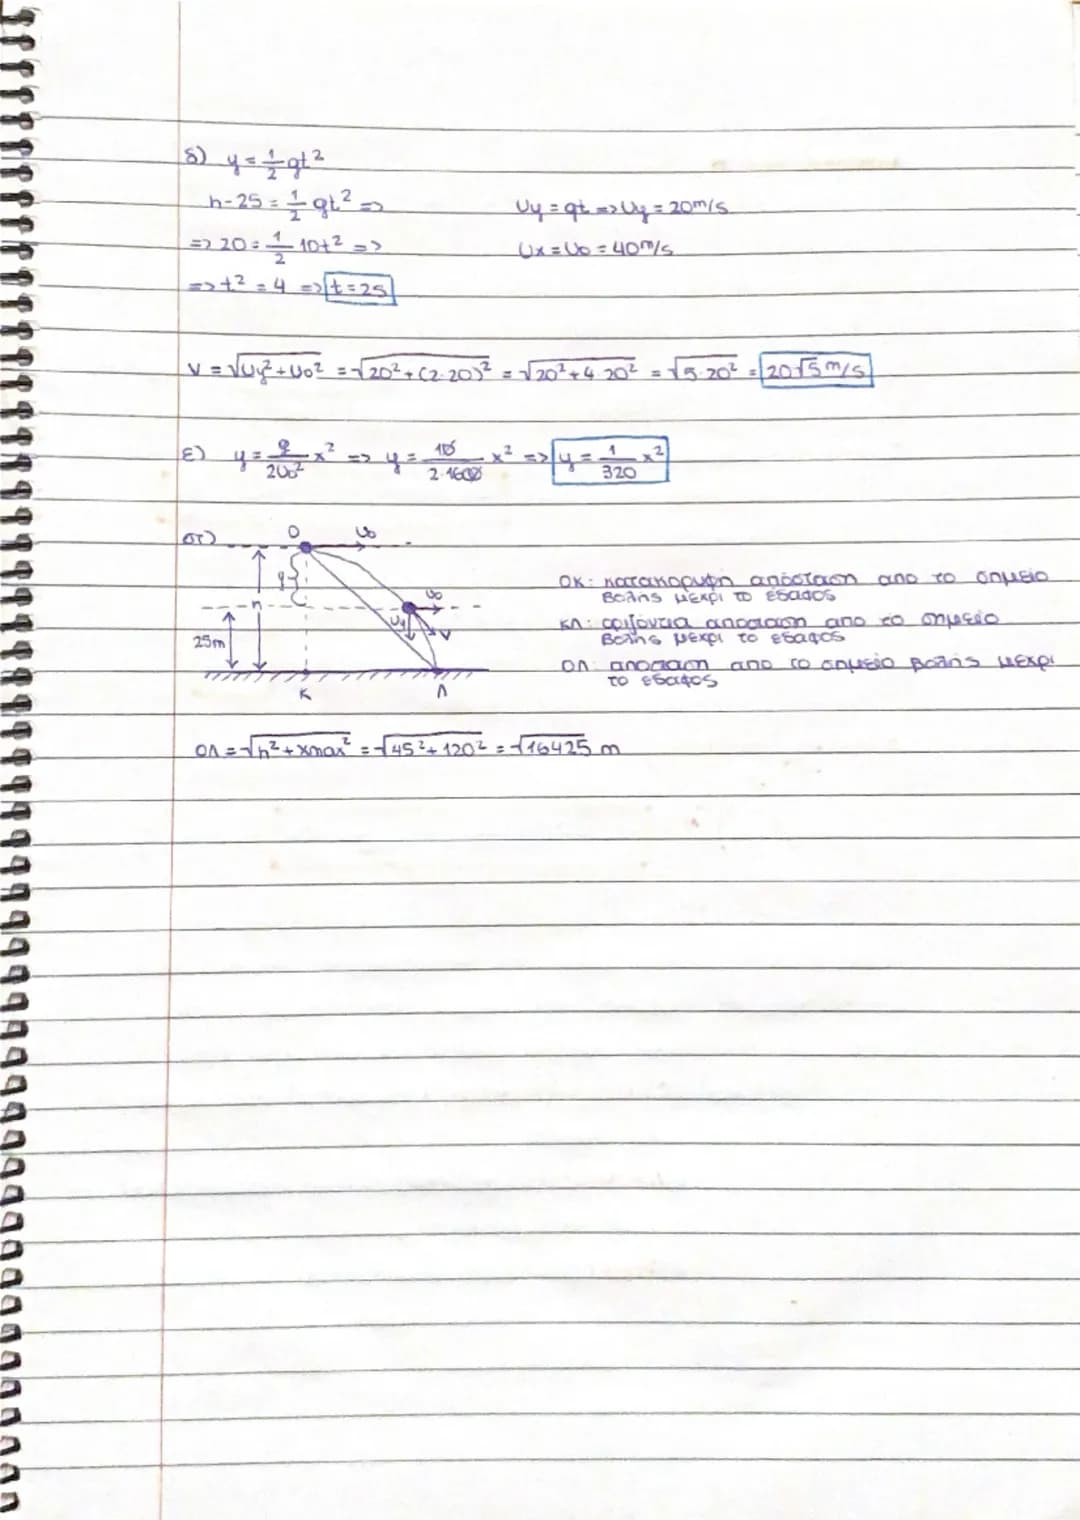 δ) y = 1/2 gt²
h-25 = 1/2 gt² =>
=> 20 = 1/2 10t² =>
=> t² = 4 => t = 2s
υy = gt => υy = 20m/s
υx = υ0 = 40m/s
V = √υy² + υ0² = √20² + (2·20)² = √20² + 4·20² = √5·20² = 20√5 m/s
ε) y = g/2υ0² x² => y = 10/2·1600 x² => y = 1/320 x²
στ)
O υ0
y
h υ0
25m υy V
K Λ
ΟΚ: κατακορυφη απόσταση απο το σημειο
βολης μεχρι το εδαφος
ΚΛ: οριζόντια αποσταση απο το σημειο
βολης μεχρι το εδαφος
ΟΛ: αποσταση απο το σημειο βολης μεχρι
το εδαφος
ΟΛ = √h² + xmax² = √45² + 120² = √16425 m